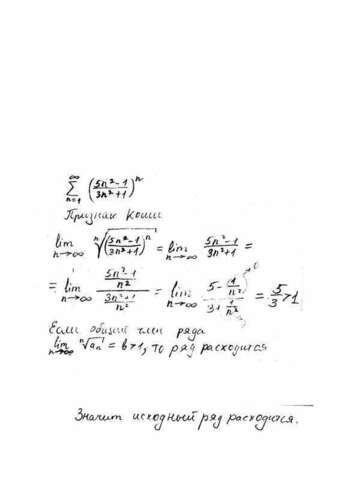 ∑_{n=1}^{∞} ((5n²-1)/(3n²+1))^n
Признак Коши
lim_{n→∞} ⁿ√((5n²-1)/(3n²+1))^n = lim_{n→∞} (5n²-1)/(3n²+1) =
= lim_{n→∞} ((5n²-1)/n²)/((3n²+1)/n²) = lim_{n→∞} (5-1/n²)/(3+1/n²) = 5/3 > 1
Если общий член ряда
lim_{n→∞} ⁿ√aₙ = b > 1, то ряд расходится
Значит исходный ряд расходится.